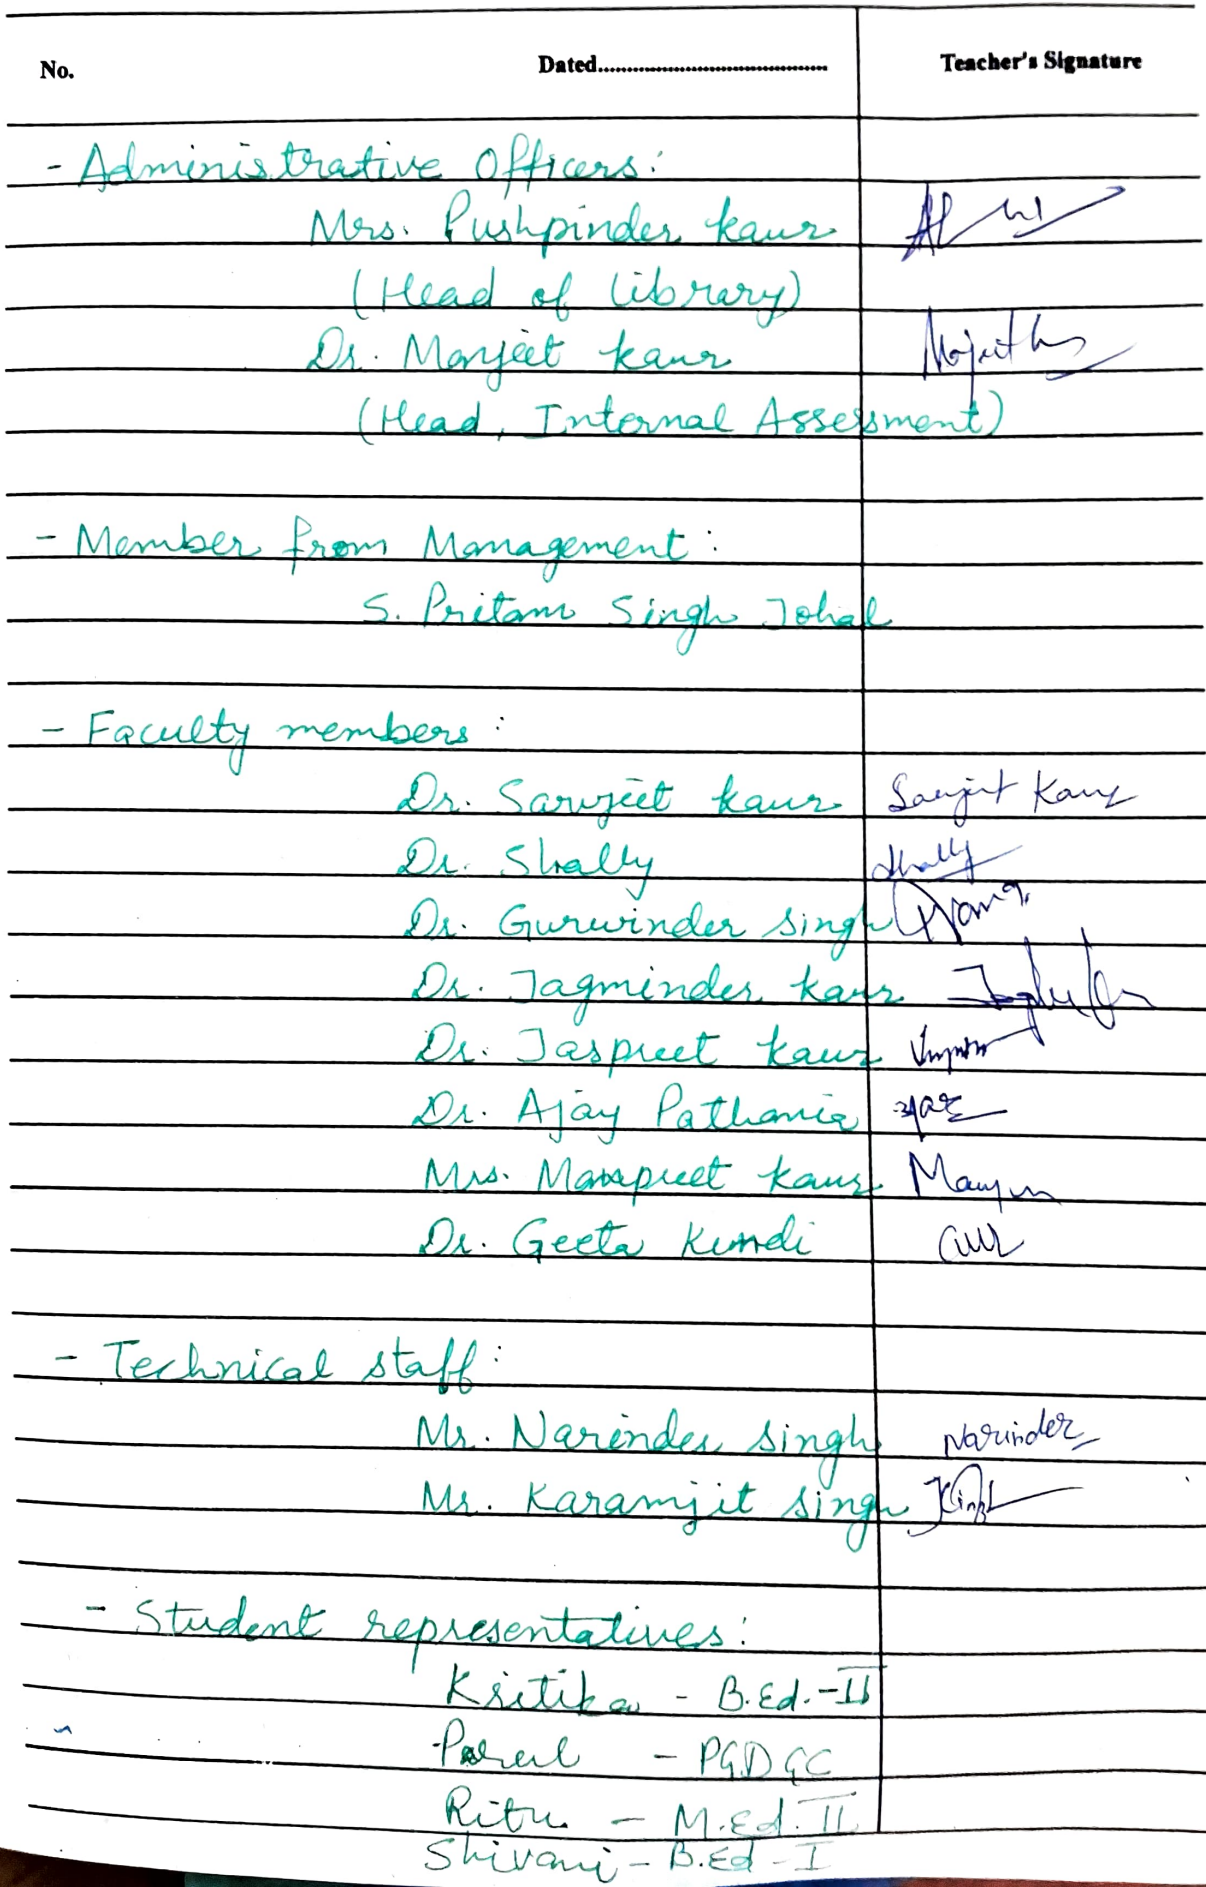 No. Dated........................................ Teacher's Signature
- Administrative Officers:
Mrs. Pushpinder Kaur
(Head of Library)
Dr. Manjeet Kaur
(Head, Internal Assessment)
- Member from Management :
S. Pritam Singh Johal
- Faculty members :
Dr. Sarvjeet Kaur Sarvjit Kaur
Dr. Shally Shally
Dr. Gurwinder Singh
Dr. Jagminder Kaur
Dr. Jaspreet Kaur
Dr. Ajay Pathania
Mrs. Manpreet Kaur
Dr. Geeta Kundi
- Technical staff :
Mr. Narinder Singh Narinder
Mr. Karamjit Singh
- Student representatives :
Kritika - B.Ed.-II
Parul - PGDGC
Ritu - M.Ed. II
Shivani - B.Ed - I